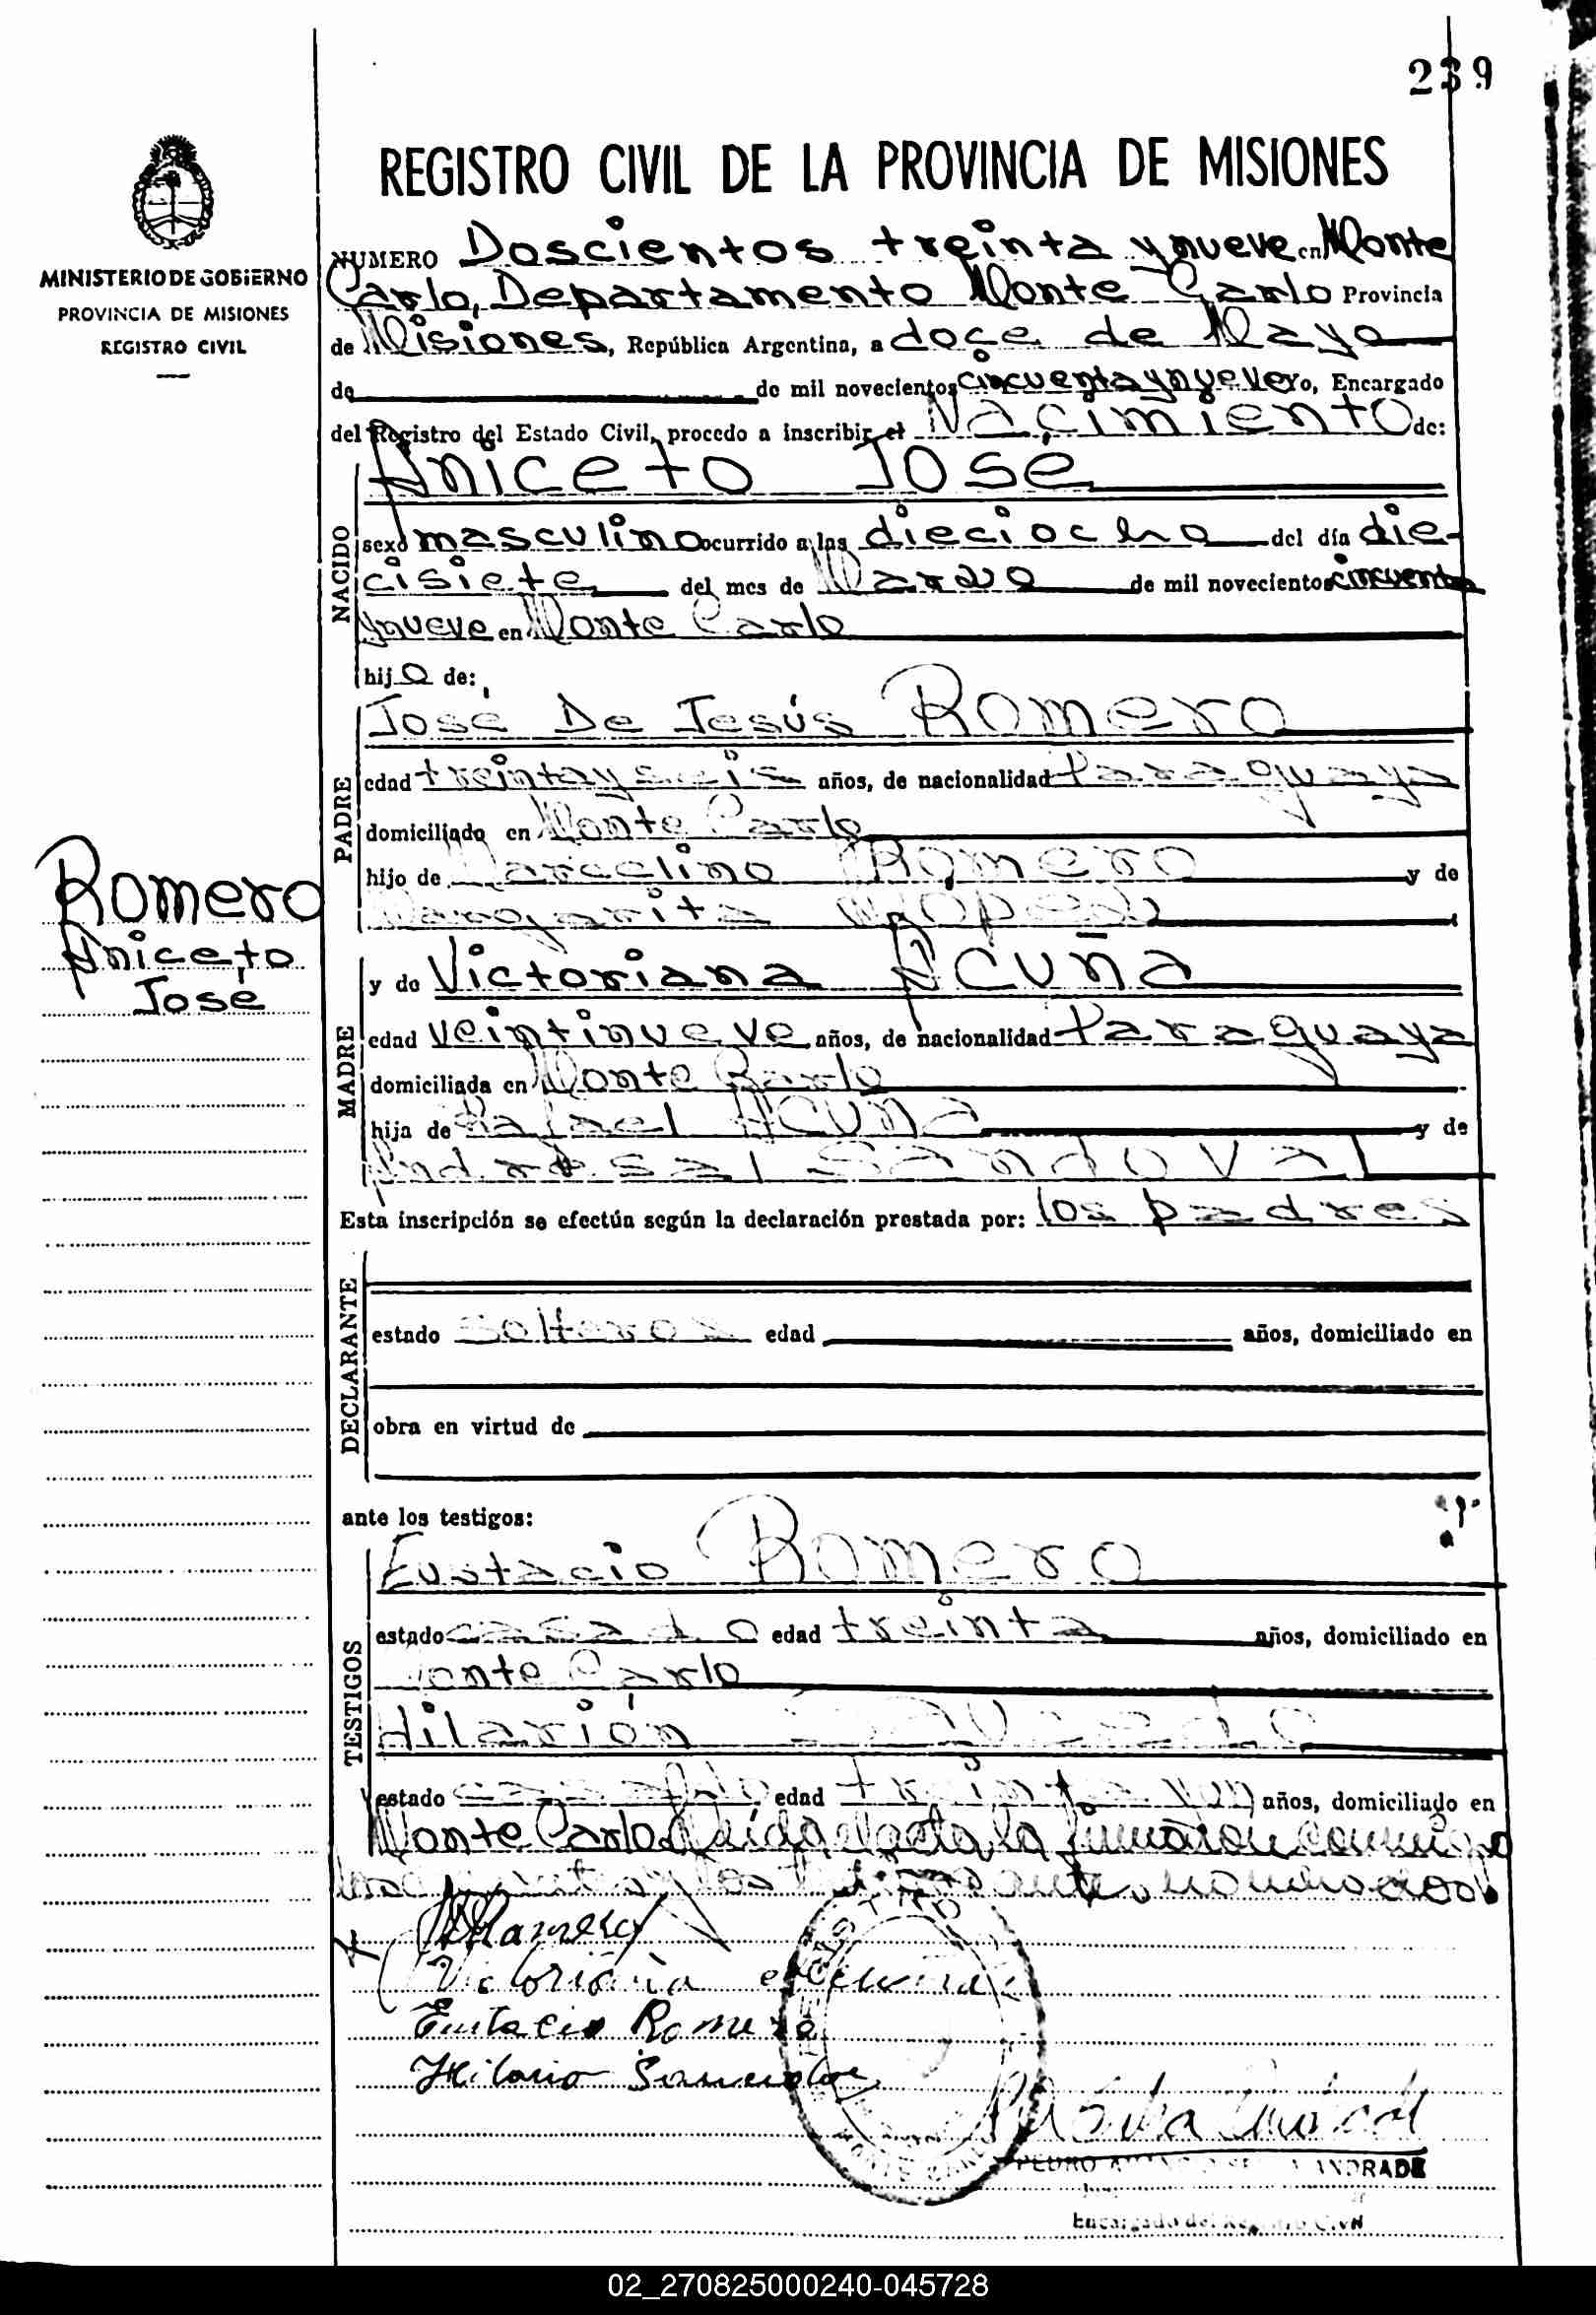 239
REGISTRO CIVIL DE LA PROVINCIA DE MISIONES
MINISTERIO DE GOBIERNO
PROVINCIA DE MISIONES
REGISTRO CIVIL
NUMERO Doscientos treinta y nueve en Monte
Carlo, Departamento Monte Carlo Provincia
de Misiones, República Argentina, a doce de Mayo
de de mil novecientos cincuenta y nueve yo, Encargado
del Registro del Estado Civil, procedo a inscribir el Nacimiento de:
Aniceto José
NACIDO
sexo masculino ocurrido a las dieciocho del día die-
cisiete del mes de Marzo de mil novecientos cincuenta
y nueve en Monte Carlo
hijo de:
José De Jesús Romero
PADRE
edad treinta y seis años, de nacionalidad Paraguaya
domiciliado en Monte Carlo
hijo de Marcelino Romero y de
Margarita
Romero
Aniceto
José
y de Victoriana Acuña
MADRE
edad veintinueve años, de nacionalidad Paraguaya
domiciliada en Monte Carlo
hija de Rafael Acuña y de
Sandoval
Esta inscripción se efectúa según la declaración prestada por: los padres
DECLARANTE
estado solteros edad años, domiciliado en
obra en virtud de
ante los testigos:
TESTIGOS
Eustacio Romero
estado casado edad treinta años, domiciliado en
Monte Carlo
Hilarión
estado casado edad treinta y un años, domiciliado en
Monte Carlo. Leída el acta la firmaron conmigo
los y los testigos ante nombrados
Romero
Victoriana Acuña
Eustacio Romero
Hilario
PEDRO ANDRADE
Encargado del Registro Civil
02_270825000240-045728